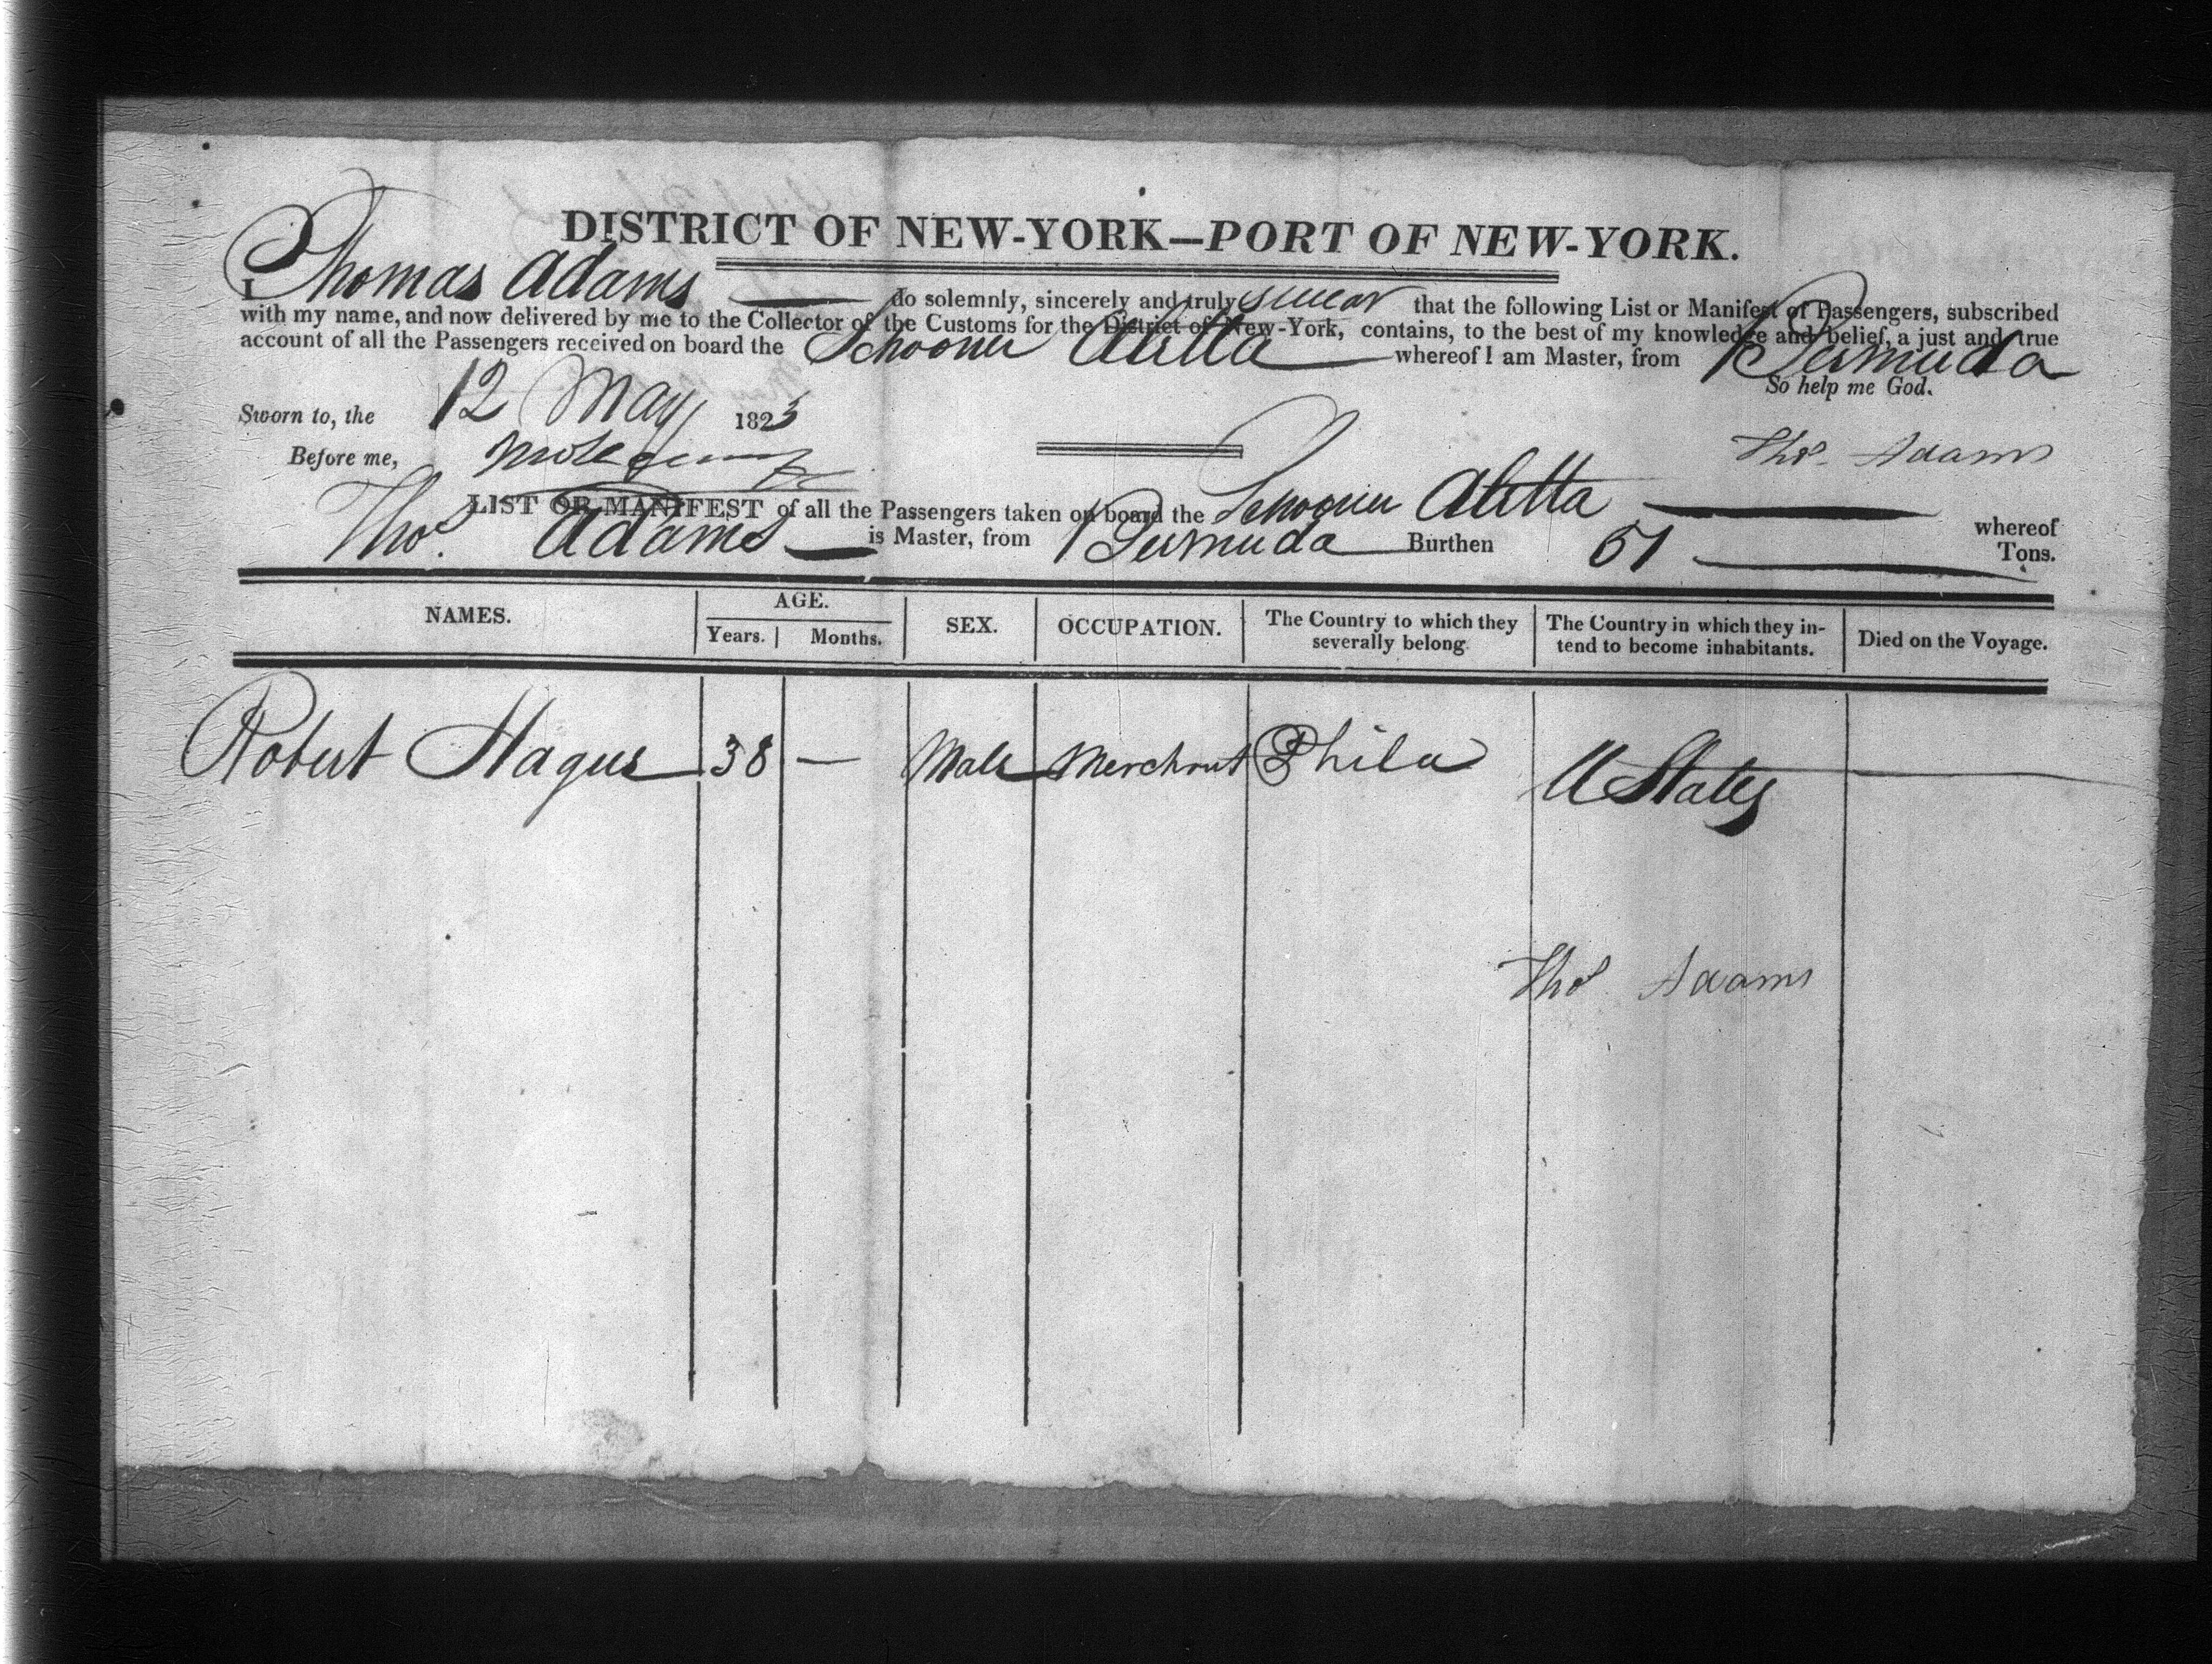 DISTRICT OF NEW-YORK—PORT OF NEW-YORK.
I Thomas Adams do solemnly, sincerely and truly swear that the following List or Manifest of Passengers, subscribed
with my name, and now delivered by me to the Collector of the Customs for the District of New-York, contains, to the best of my knowledge and belief, a just and true
account of all the Passengers received on board the Schooner Aletta whereof I am Master, from Bermuda
So help me God.
Sworn to, the 12 May 1823
Thos. Adams
Before me,
LIST OR MANIFEST of all the Passengers taken on board the Schooner Aletta whereof
Thos. Adams is Master, from Bermuda Burthen 51 Tons.
NAMES. AGE. Years. Months. SEX. OCCUPATION. The Country to which they severally belong. The Country in which they intend to become inhabitants. Died on the Voyage.
Robert Hague 38 — Male Merchant Phila U States
Thos Adams